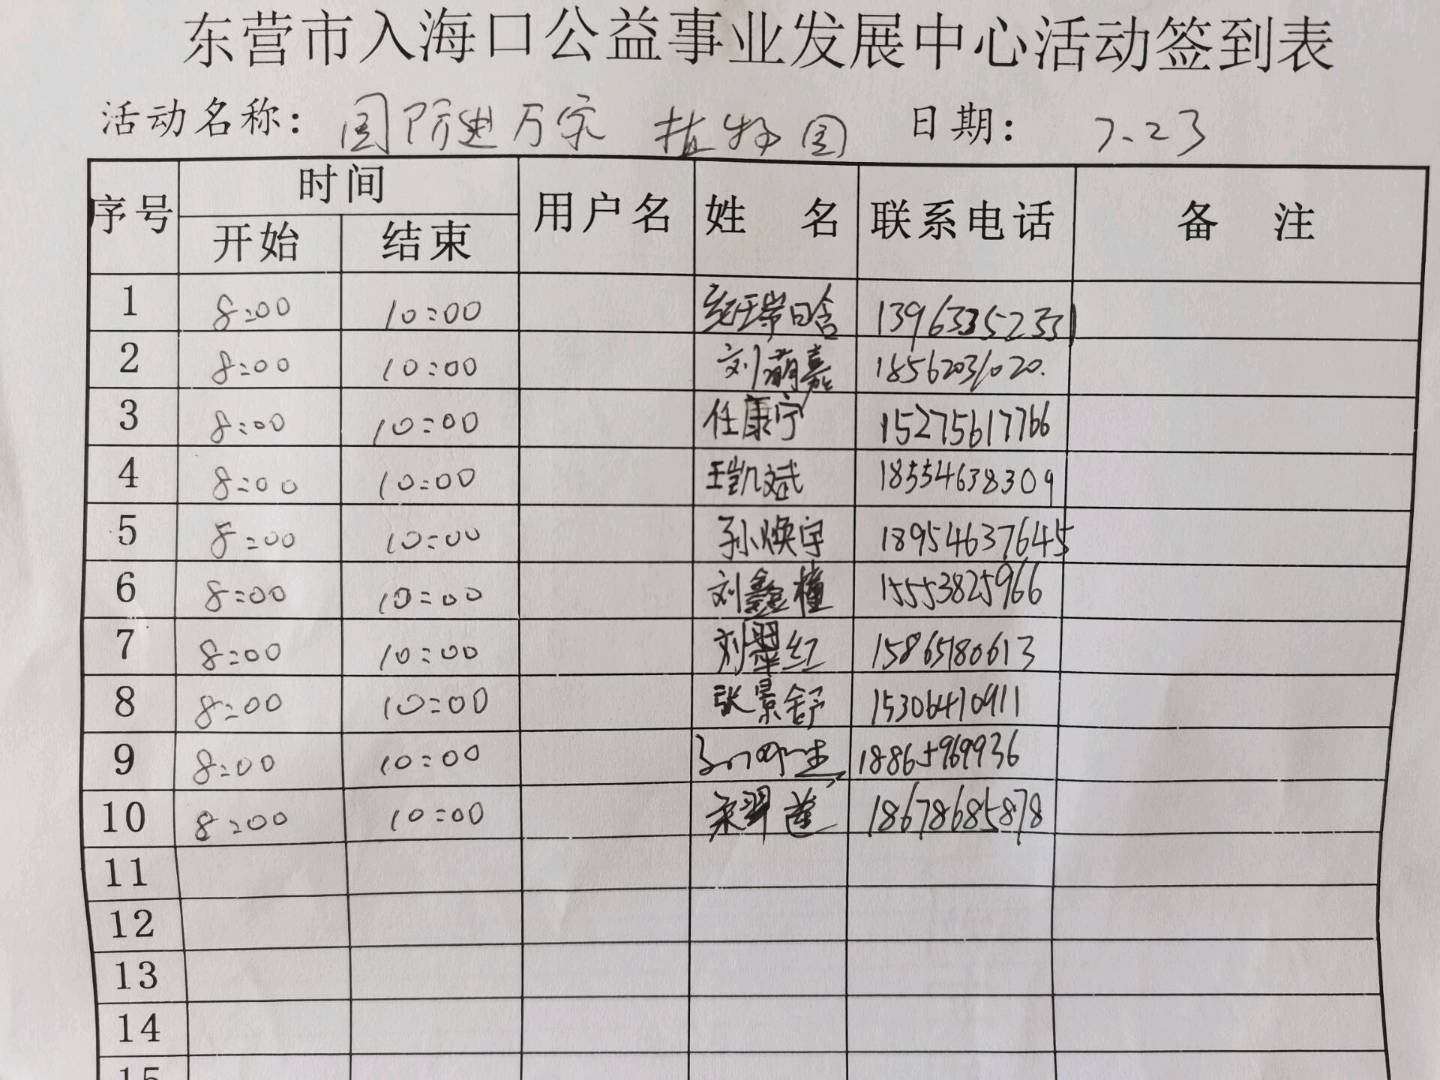 东营市入海口公益事业发展中心活动签到表
活动名称: 国防进万家 植物园 日期: 7.23
序号 时间 用户名 姓名 联系电话 备注
开始 结束
1 8:00 10:00 13963352331
2 8:00 10:00 刘萌嘉 18562031020.
3 8:00 10:00 任康宁 15275617766
4 8:00 10:00 王凯斌 18554638309
5 8:00 10:00 孙焕宇 18954637645
6 8:00 10:00 刘鑫橦 15553825966
7 8:00 10:00 刘翠红 15865180613
8 8:00 10:00 张景舒 15306410911
9 8:00 10:00 18865969936
10 8:00 10:00 18678685878
11
12
13
14
15